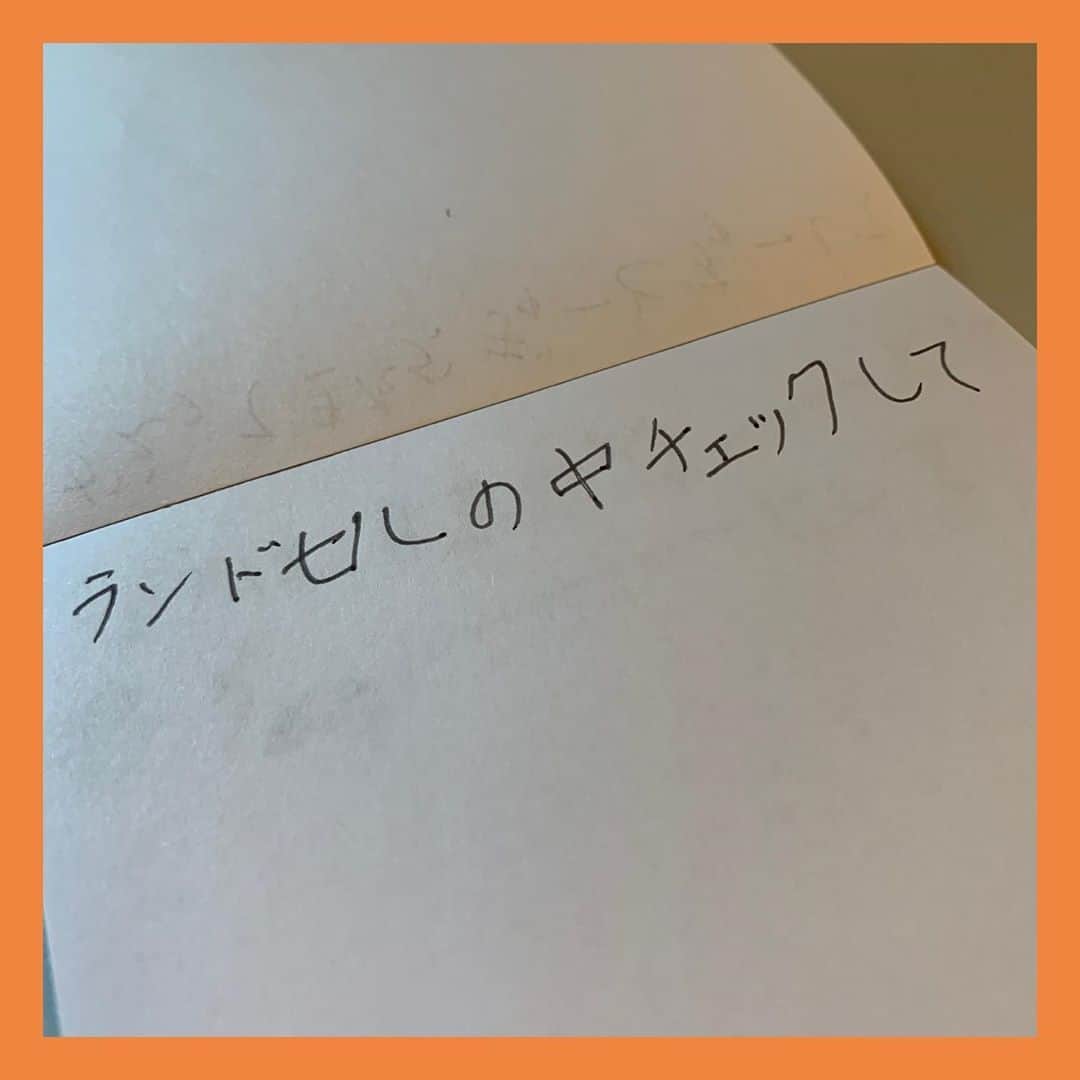 ランドセルの中チェックして